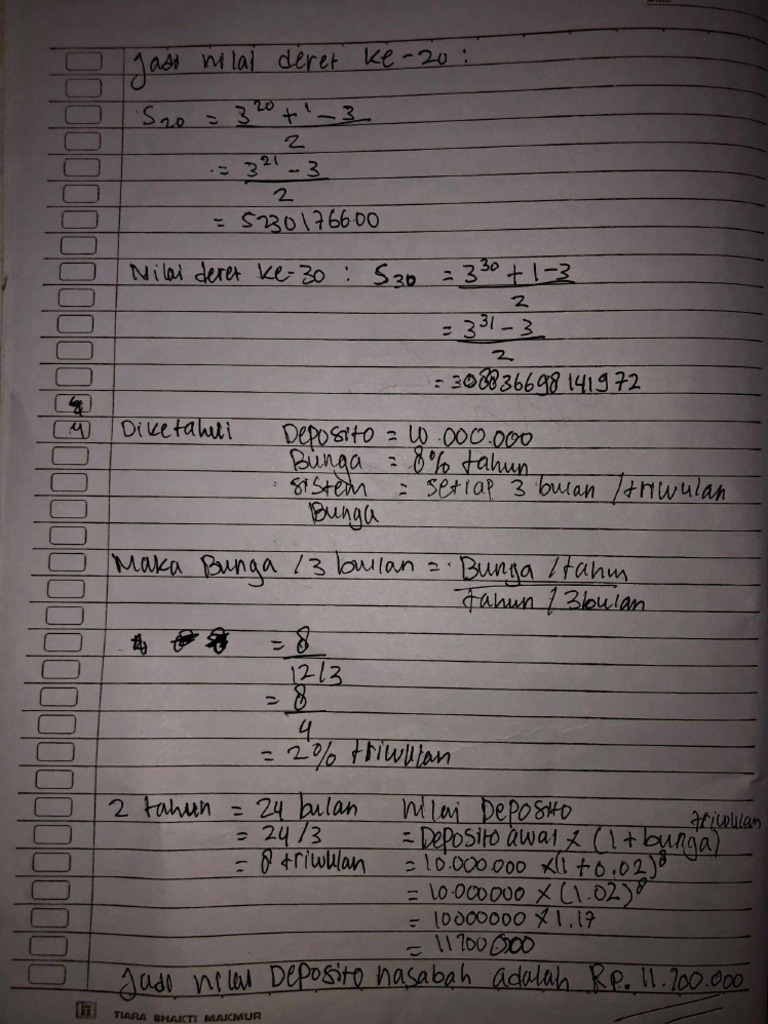 Jadi nilai deret ke-20 :
S20 = 3^20 + 1 - 3 / 2
= 3^21 - 3 / 2
= 5230176600
Nilai deret ke-30 : S30 = 3^30 + 1 - 3 / 2
= 3^31 - 3 / 2
= 308836698141972
4 Diketahui Deposito = 10.000.000
Bunga = 8% tahun
Sistem = setiap 3 bulan / triwulan
Bunga
Maka Bunga / 3 bulan = Bunga / tahun
tahun / 3 bulan
= 8
12/3
= 8
4
= 2% triwulan
2 tahun = 24 bulan Nilai Deposito
= 24/3 = Deposito awal x (1 + bunga)^triwulan
= 8 triwulan = 10.000.000 x (1 + 0.02)^8
= 10.000000 x (1.02)^8
= 10000000 x 1.17
= 11700000
Jadi nilai Deposito nasabah adalah Rp. 11.700.000
TIARA BHAKTI MAKMUR